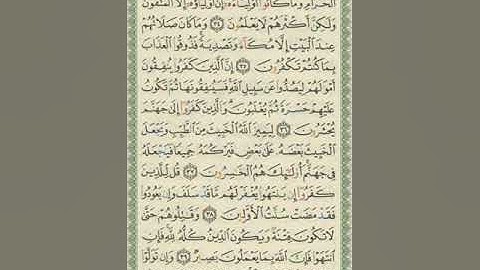 الْحَرَامِ وَمَا كَانُوا أَوْلِيَاءَهُ إِنْ أَوْلِيَاؤُهُ إِلَّا الْمُتَّقُونَ
وَلَٰكِنَّ أَكْثَرَهُمْ لَا يَعْلَمُونَ ٣٤ وَمَا كَانَ صَلَاتُهُمْ
عِندَ الْبَيْتِ إِلَّا مُكَاءً وَتَصْدِيَةً فَذُوقُوا الْعَذَابَ
بِمَا كُنتُمْ تَكْفُرُونَ ٣٥ إِنَّ الَّذِينَ كَفَرُوا يُنفِقُونَ
أَمْوَالَهُمْ لِيَصُدُّوا عَن سَبِيلِ اللَّهِ فَسَيُنفِقُونَهَا ثُمَّ تَكُونُ
عَلَيْهِمْ حَسْرَةً ثُمَّ يُغْلَبُونَ وَالَّذِينَ كَفَرُوا إِلَىٰ جَهَنَّمَ
يُحْشَرُونَ ٣٦ لِيَمِيزَ اللَّهُ الْخَبِيثَ مِنَ الطَّيِّبِ وَيَجْعَلَ
الْخَبِيثَ بَعْضَهُ عَلَىٰ بَعْضٍ فَيَرْكُمَهُ جَمِيعًا فَيَجْعَلَهُ
فِي جَهَنَّمَ أُولَٰئِكَ هُمُ الْخَاسِرُونَ ٣٧ قُل لِّلَّذِينَ
كَفَرُوا إِن يَنتَهُوا يُغْفَرْ لَهُم مَّا قَدْ سَلَفَ وَإِن يَعُودُوا
فَقَدْ مَضَتْ سُنَّتُ الْأَوَّلِينَ ٣٨ وَقَاتِلُوهُمْ حَتَّىٰ
لَا تَكُونَ فِتْنَةٌ وَيَكُونَ الدِّينُ كُلُّهُ لِلَّهِ فَإِنِ
انتَهَوْا فَإِنَّ اللَّهَ بِمَا يَعْمَلُونَ بَصِيرٌ ٣٩ وَإِن تَوَلَّوْا